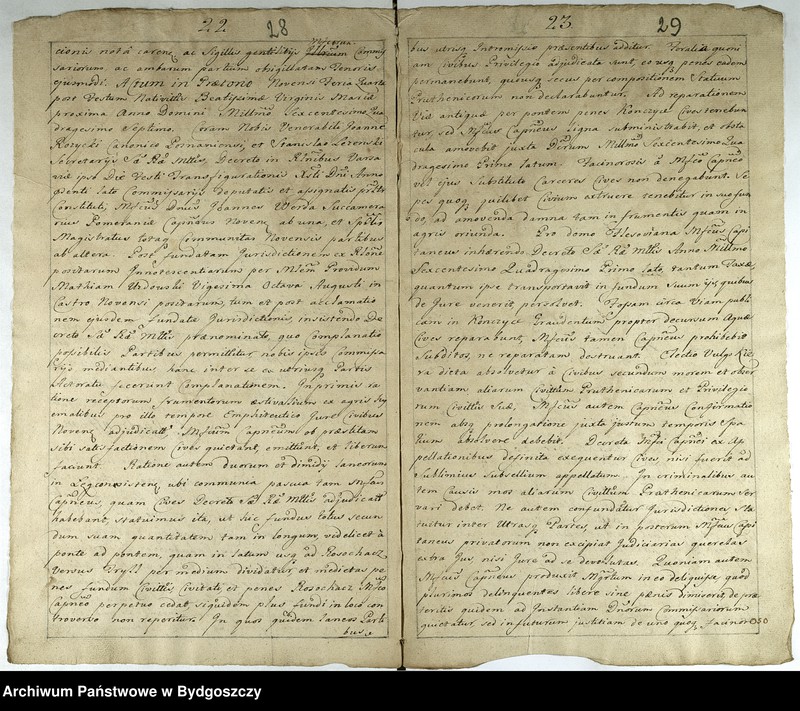 22 28
cionis notâ carens, ac Sigillis gentilitijs Illrium Commis
sariorum, ac ambarum partium obsigillatam tenoris
ejusmodi. Actum in Prætorio Novensi Feria Quarta
post Festum Nativittis Beatissimæ Virginis Mariæ
proxima Anno Domini Millmo Sexcentesimo Qua
dragesimo Septimo. Coram Nobis Venerabili Joanne
Rozycki Canonico Pomaniensi, et Stanislao
Secretarijs Sæ Ræ Mttis, Decreto in Rlnibus Varsa
viæ ipso Die Festi Transfigurationis Xsti Dni Anno
pdenti lato Commissarijs Deputatis et assignatis
Constituti, Mficus Dnus Joannes Werda Succamera
rius Pomeraniæ Capneus Noven. ab una, et Spblis
Magistratus totaq Communitas Novensis partibus
ab altera. Post fundatam Jurisdictionem ex Rlone
positarum Innotescentiarum per Mlem Providum
Mathiam Urdowski Vigesima Octava Augusti in
Castro Novensi positarum, tum et post acclamatio
nem ejusdem fundatæ Jurisdictionis, insistendo De
creto Sæ Ræ Mttis prænominato, quo Complanatio
possibilis Partibus permittitur nobis ipsis Commissa
rijs mediantibus hanc inter se ex utriusq Partis
fecerunt Complanationem. In primis ra
tione receptorum frumentorum æstivalium ex agris Hy
emalibus pro illo tempore Emphiteutico Jure Civibus
Noven. adjudicatt. Mficum Capneum ob præstitam
sibi satisfactionem cives quietant, emittunt, et liberum
faciunt. Ratione autem duorum et dimidij laneorum
in, ubi communia pascua tam Mficus
Capneus, quam Cives Decreto Sæ Ræ Mttis adjudicatt
habebant, statuimus ita, ut sic fundus totus secun
dum suam quantitatem tam in longum, videlicet à
ponte ad pontem, quam in latum usq ad Rosochacz
versus Gryll per medium dividatur, et medietas pe
nes fundum Civittis Civitati, et penes Rosochacz Mfico
Capneo perpetuo cedat, siquidem plus fundi in loco con
troverso non reperitur. In quos quidem laneos Parti
bus
23 29
bus utrisq Intromissio præsentibus additur. Foralia quoni
am Civibus Privilegio adjudicata sunt, eousq penes eadem
permanebunt, quousq secus per compositionem Statuum
Pruthenicorum non declarabuntur. Ad reparationem
Viæ antiquæ per pontem penes Konczyce Cives tenebun
tur, sed Mficus Capneus ligna subministrabit, et obsta
cula amovebit juxta Dtum Millmo Sexcentesimo Qua
dragesimo Primo latum. Facinorosis à Mfico Capneo
vel ejus Substituto Carceres Cives non denegabunt. Se
pes quoq quilibet Civium extruere tenebitur in suo fun
do, ad amovenda damna tam in frumentis quam in
agris oriunda. Pro domo Mficus Capi
taneus inhærendo Decreto Sæ Ræ Mttis Anno Millmo
Sexcentesimo Quadragesimo Primo lato, tantum Taxæ,
quantum ipse transportavit in fundum Suum ijs, quibus
de Jure venerit, persolvet. Fossam circa Viam publi
cam in Konczyce Graudentum propter decursum Aquæ
Cives reparabunt, Mficus tamen Capneus prohibebit
Subditos, ne reparatam destruant. Electio Vulgo Kie
ra dicta absolvetur à Civibus secundum morem et obser
vantiam aliarum Civittum Pruthenicarum et Privilegio
rum Civittis Suæ, Mficus autem Capneus Confirmatio
nem absq prolongatione juxta justum temporis Spa
tium absolvere debebit. Decreta Mfici Capnei ex Ap
pellationibus definita exequentur Cives nisi fuerit ad
Sublimius Subsellium appellatum. In criminalibus au
tem Causis mos aliarum Civittum Pruthenicarum ser
vari debet. Ne autem confundatur Jurisdictiones Sta
tuitur inter Utrasq Partes, ut in posterum Mficus Capi
taneus privatorum non excipiat Judiciarias querelas
extra Jus nisi Jure ad se devolutas. Quoniam autem
Mficus Capneus produxit Mgrtum in eo deliquisse, quod
plurimos delinquentes libere sine pænis dimiserit, de præ
teritis quidem ad Instantiam Dnorum Commissariorum
quietatur, sed in futurum justitiam de uno quoq facinor
Archiwum Państwowe w Bydgoszczy